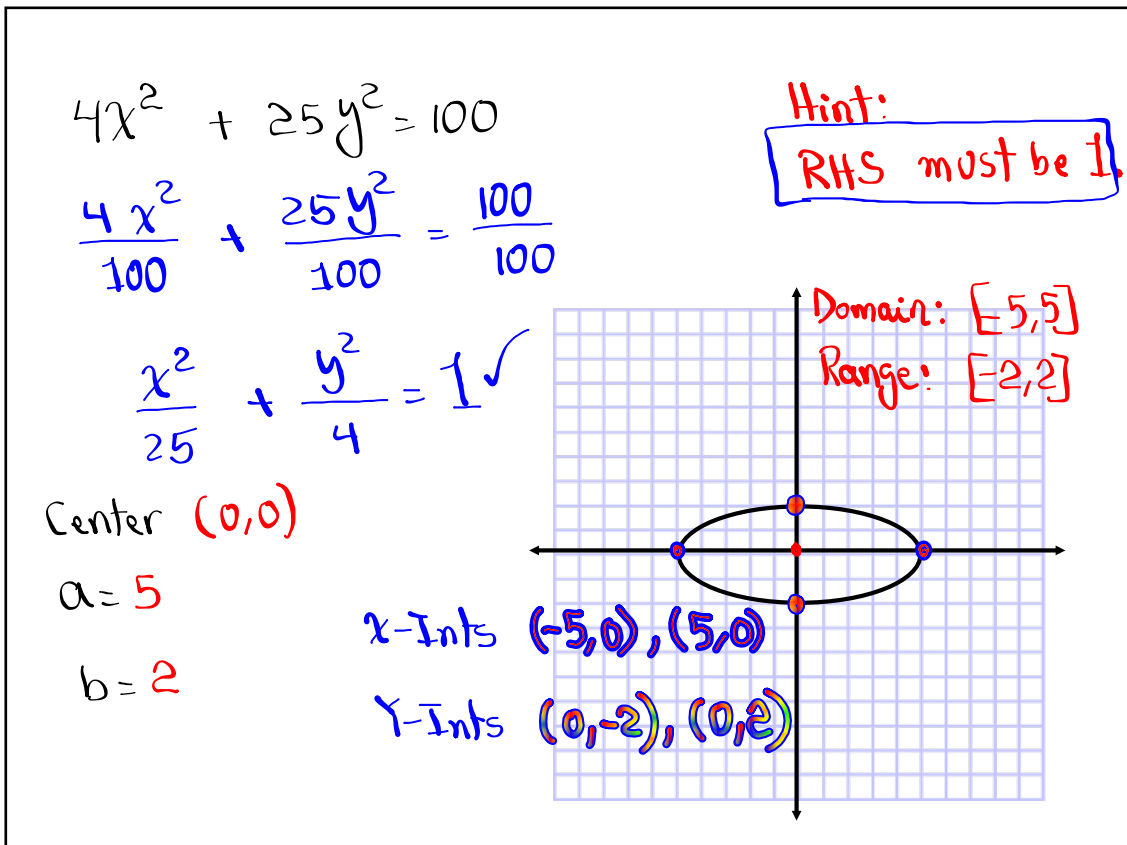 4x² + 25y² = 100
Hint:
RHS must be 1.
4x²/100 + 25y²/100 = 100/100
x²/25 + y²/4 = 1 ✓
Domain: [-5,5]
Range: [-2,2]
Center (0,0)
a = 5
b = 2
x-Ints (-5,0), (5,0)
Y-Ints (0,-2), (0,2)